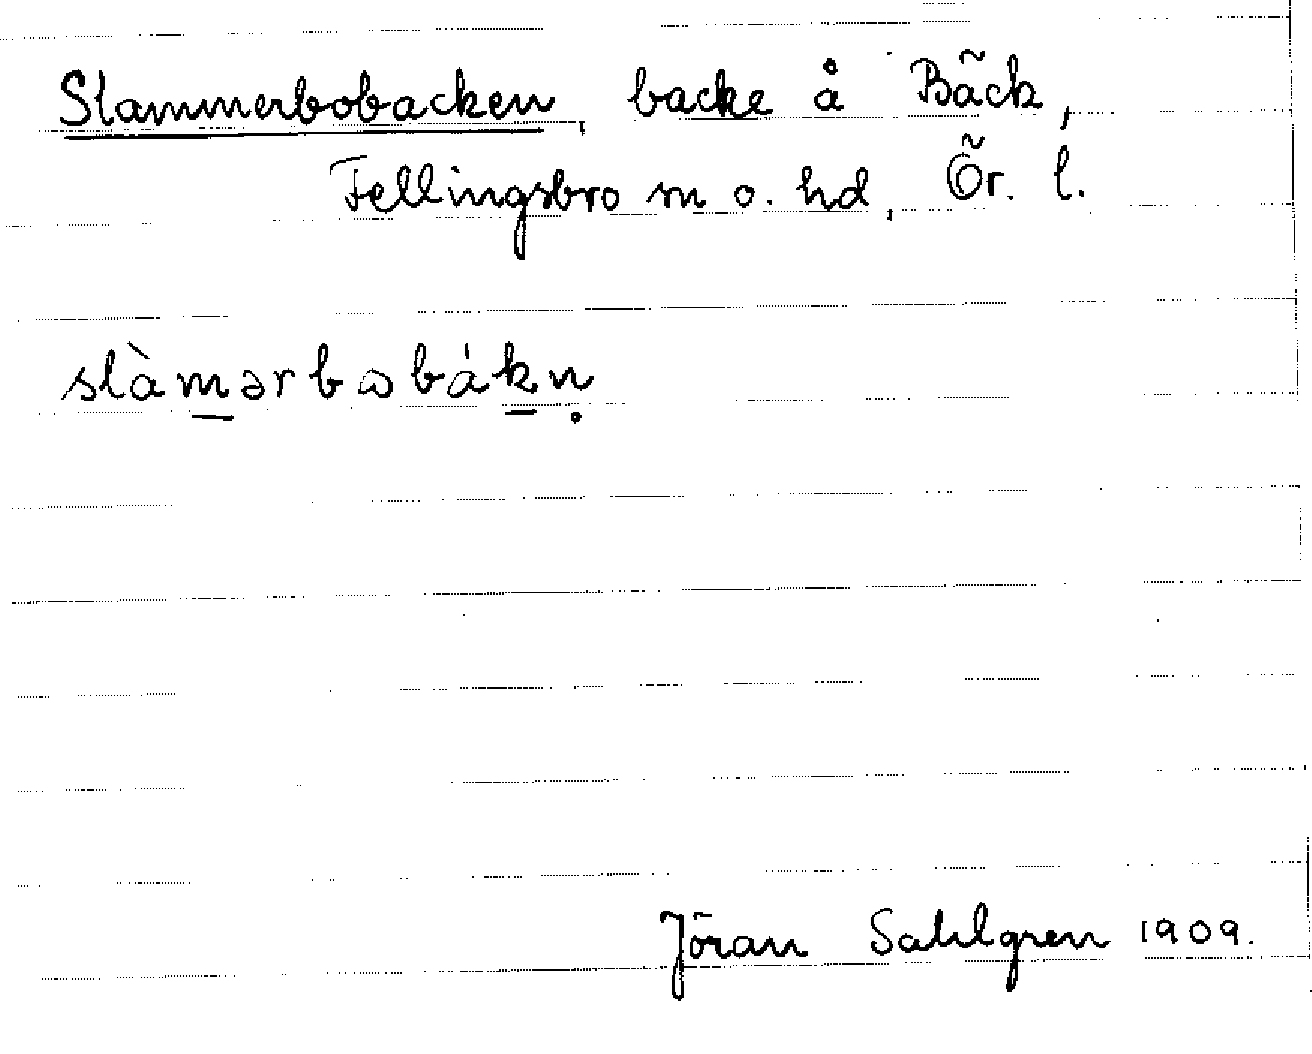 Slammerbobacken, backe å Bäck,
Fellingsbro sn o. hd, Ör. l.
slàm̲ərbɷbák̲n̥
Jöran Sahlgren 1909.